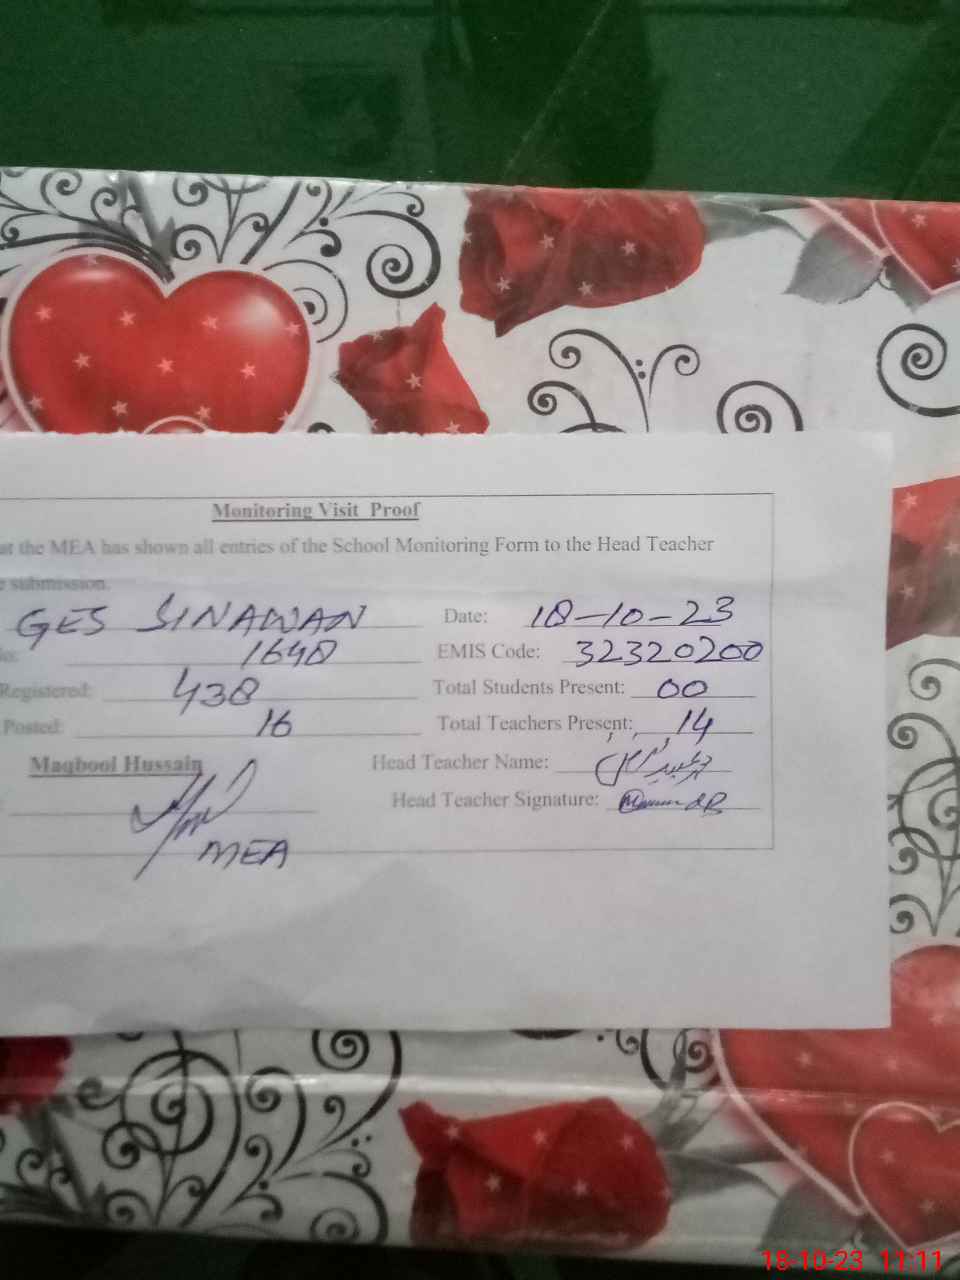 Monitoring Visit Proof
at the MEA has shown all entries of the School Monitoring Form to the Head Teacher
submission.
GES SINAWAN Date: 18-10-23
1648 EMIS Code: 32320200
Registered: 438 Total Students Present: 00
Posted: 16 Total Teachers Present: 14
Maqbool Hussain Head Teacher Name:
Head Teacher Signature:
MEA
18-10-23 11:11